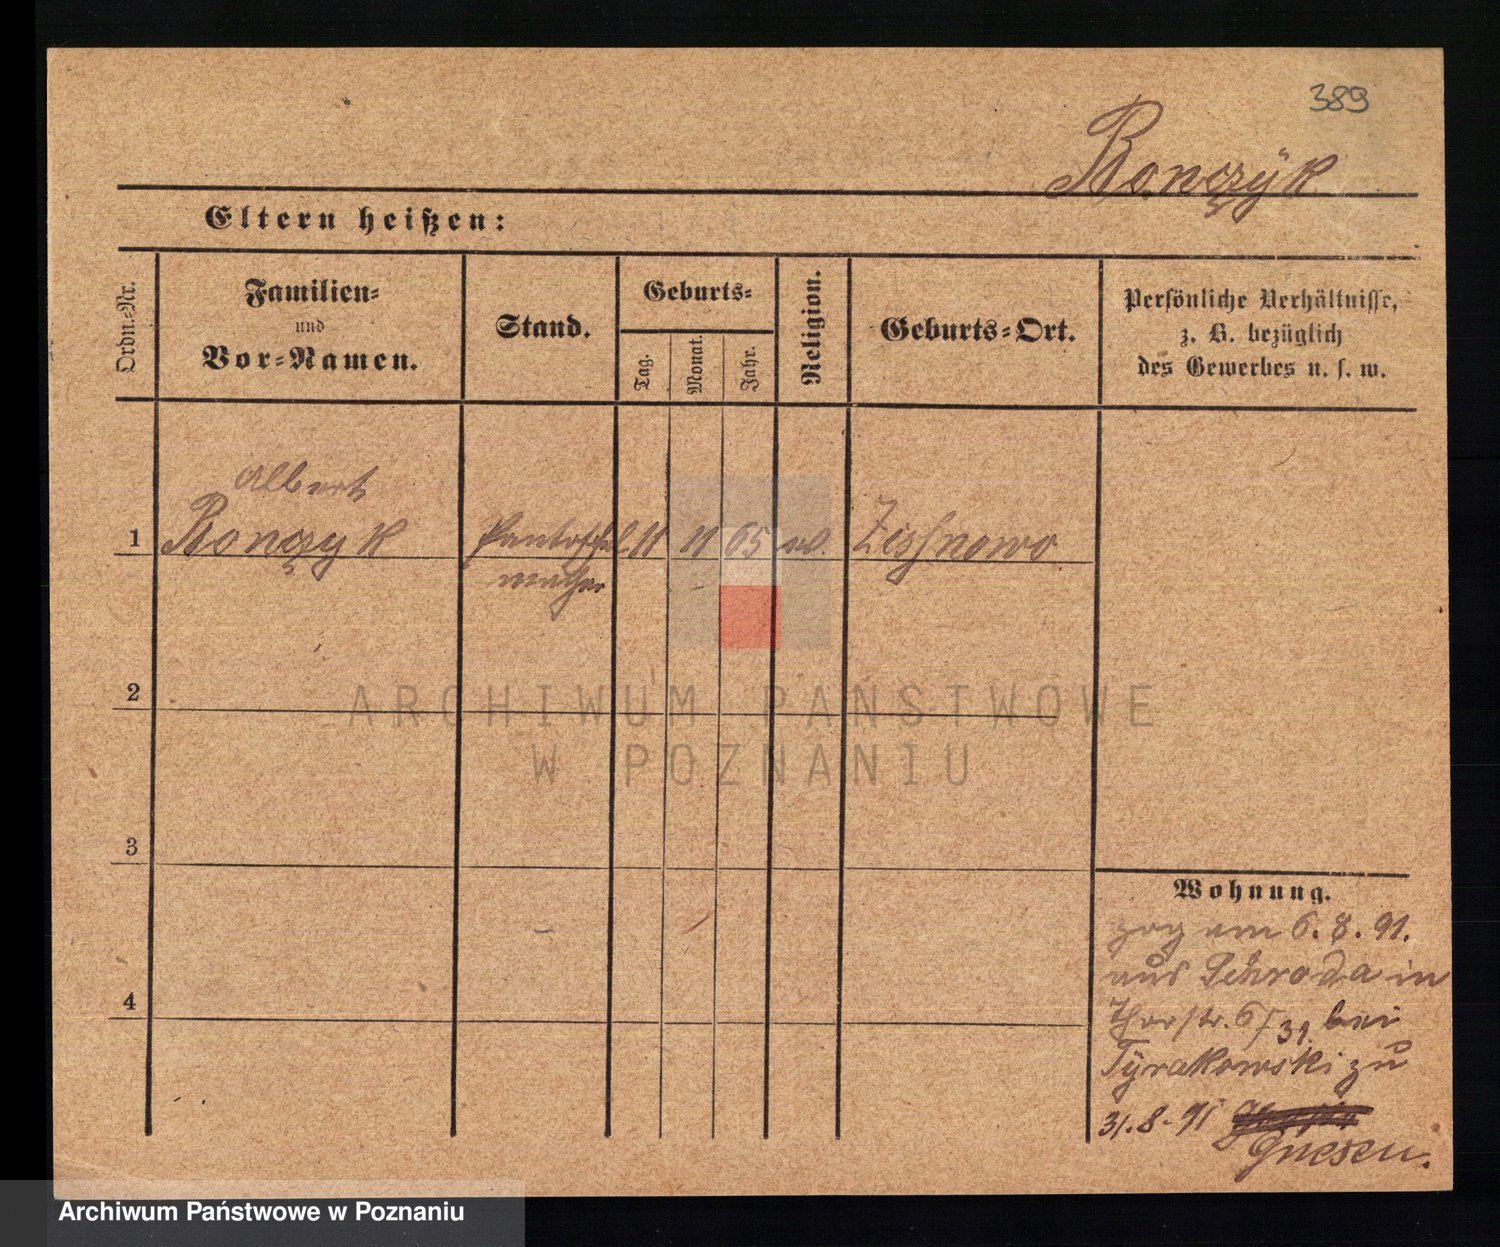 389
Ronczÿk
Eltern heißen:
Ordn.-Nr.
Familien-
und
Vor-Namen.
Stand.
Geburts-
Tag.
Monat.
Jahr.
Religion.
Geburts-Ort.
Persönliche Verhältnisse,
z. B. bezüglich
des Gewerbes u. s. w.
Albert
1 Ronczyk Pantoffel 11 11 65 Zissnowo
macher
2
ARCHIWUM PAŃSTWOWE
W POZNANIU
3
4
Wohnung.
zog am 6. 8. 91.
aus Schroda in
Thorstr. bei
Tÿrakowski zu
31.8.91
Gnesen.
Archiwum Państwowe w Poznaniu